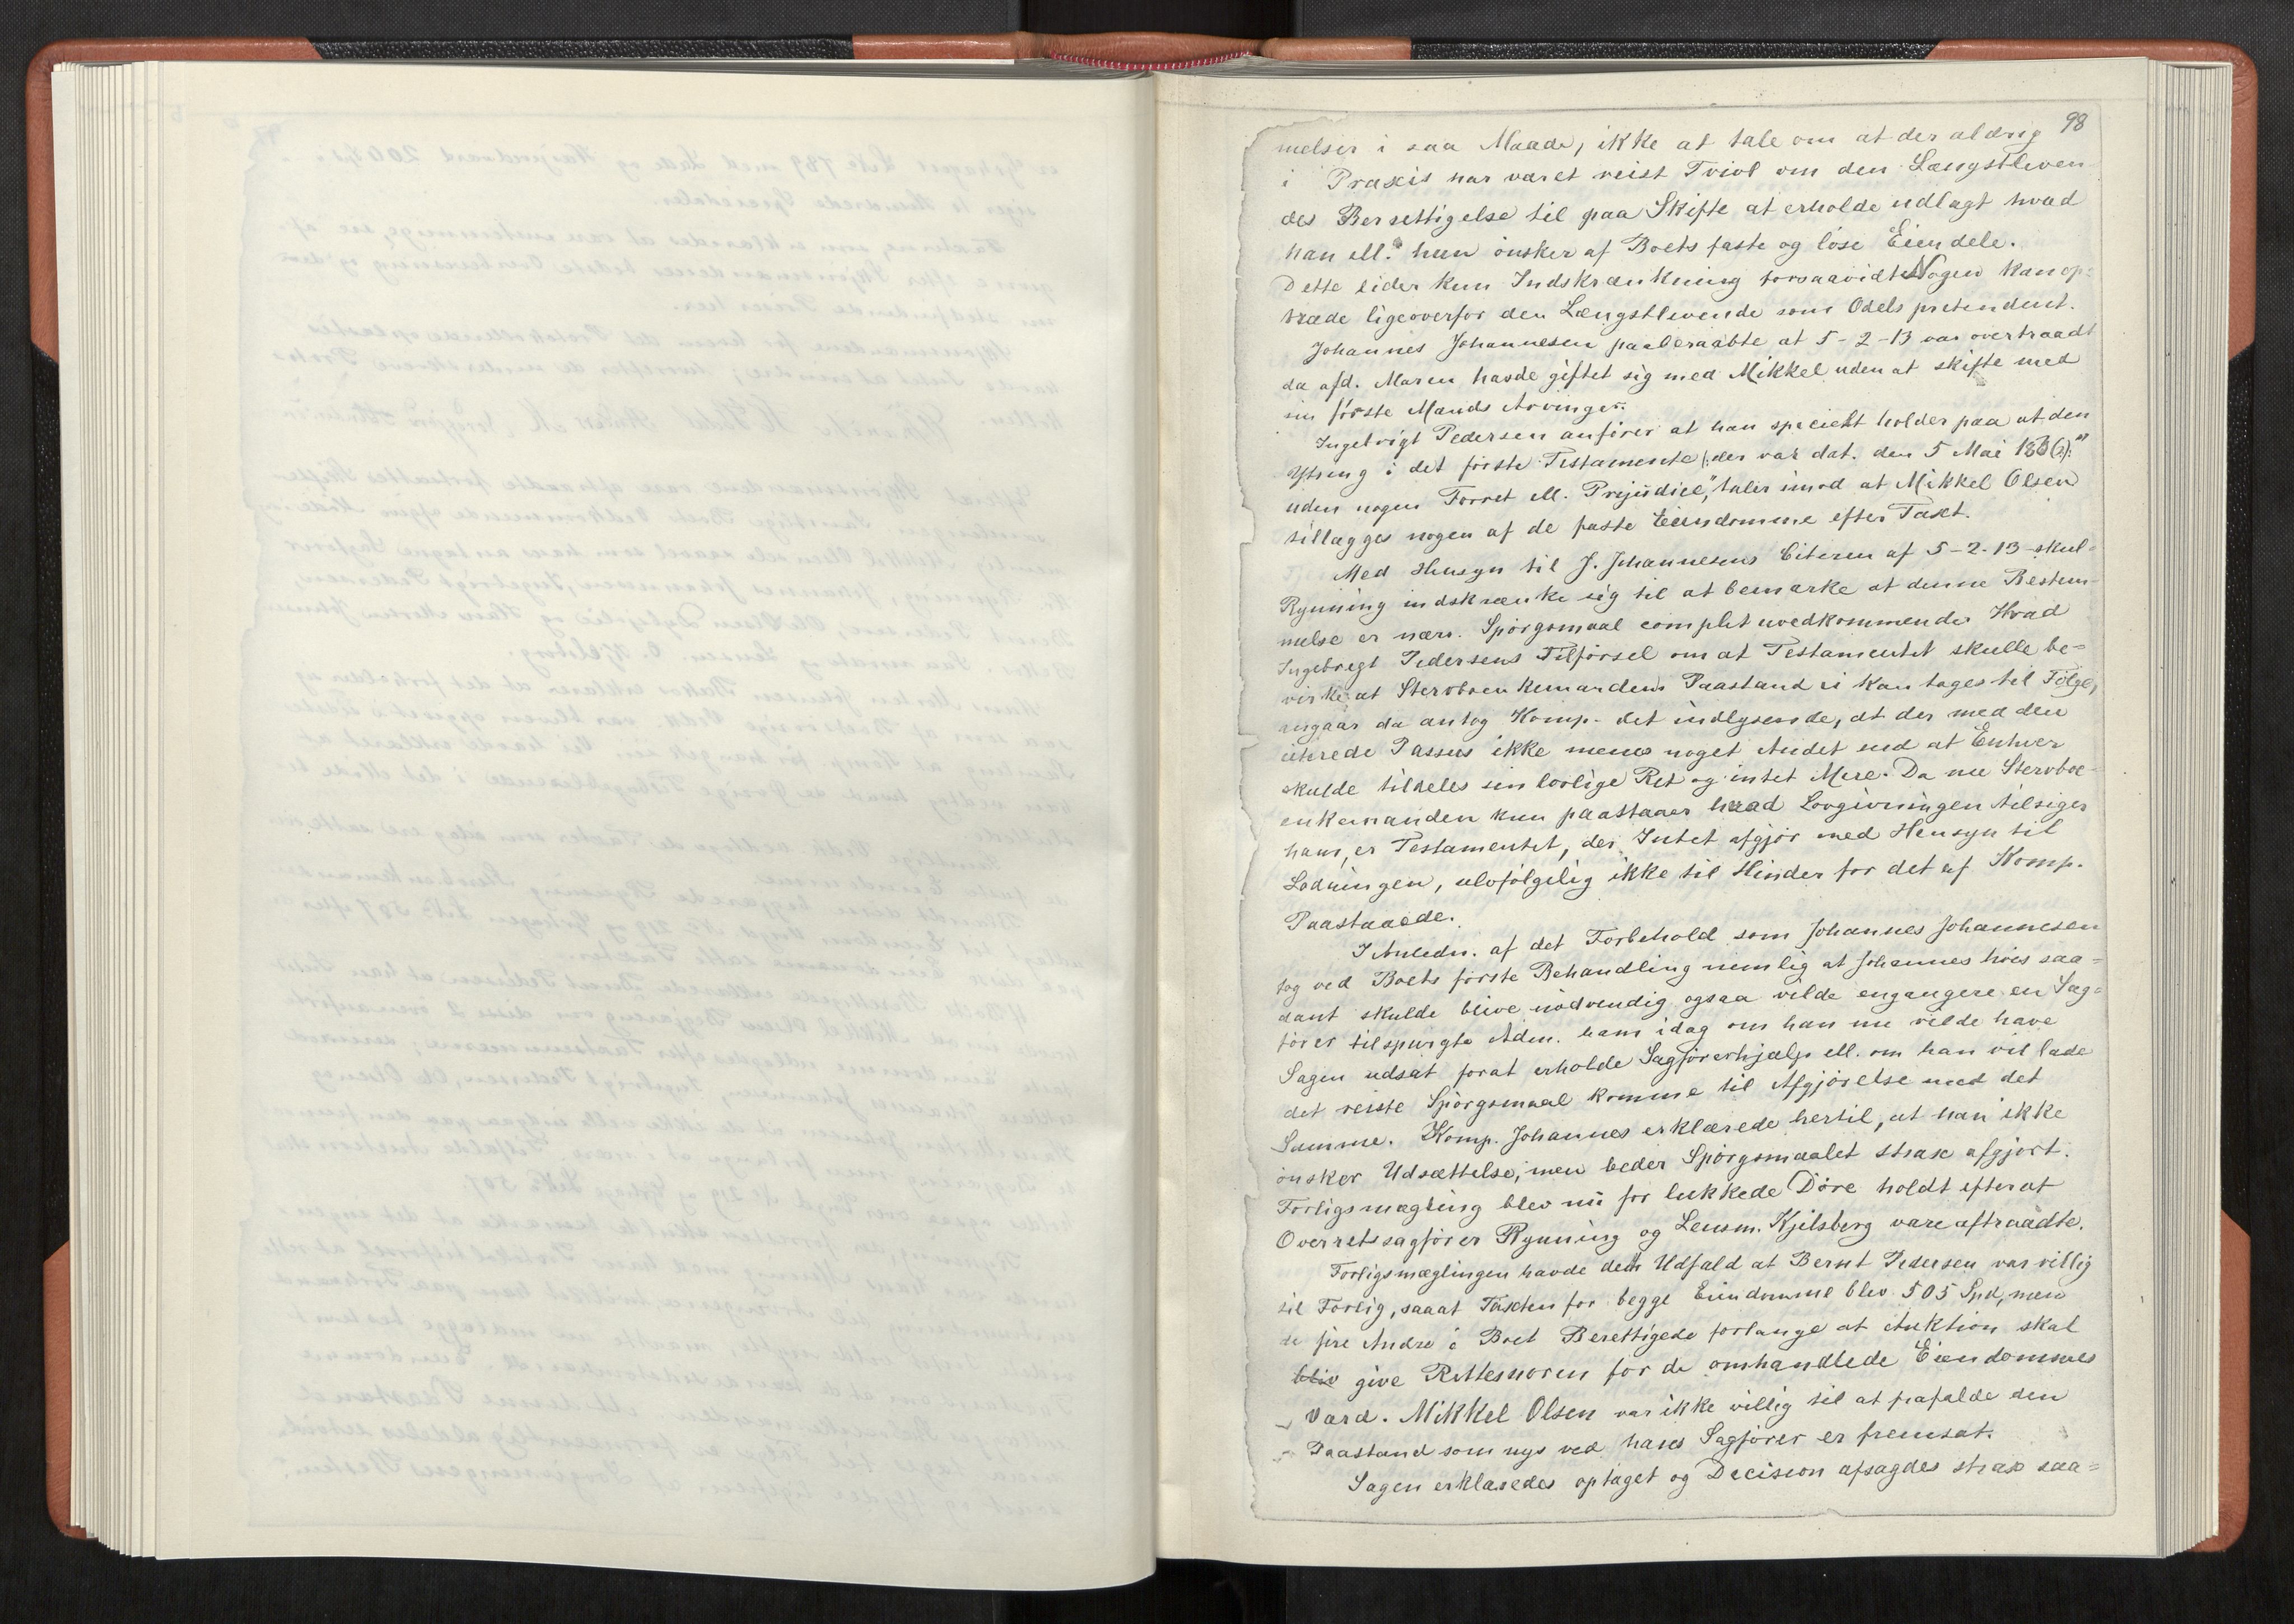 98
melser i saa Maade, ikke at tale om at der aldrig
i Praxis har været reist Tvivl om den Længstleven
des Berettigelse til paa Skifte at erholde udlagt hvad
han ell. hun ønsker af Boets faste og løse Eiendele.
Dette lider kun Indskrænkning forsaavidt Nogen kan op-
træde ligeoverfor den Længstlevende som Odelspretendent.
Johannes Johannesen paaberaabte at 5-2-13 var overtraadt
da afd. Maren havde giftet sig med Mikkel uden at skifte med
sin første Mands Arvinger.
Ingebrigt Pedersen anfører at han specielt holder paa at den
Ytring i det første Testamente (: der var dat. den 5 Mai
uden nogen Forret ell. Prejudice," taler imod at Mikkel Olsen
tillægges nogen af de faste Eiendomme efter Taxt.
Med Hensyn til J. Johannesens Citeren af 5-2-13 skul-
Rynning indskrænke sig til at bemærke at denne Bestem-
melse er nærv. Spørgsmaal complet uvedkommende Hvad
Ingebrigt Pedersens Tilførsel om at Testamentet skulde be-
virke at Stervboenkemandens Paastand ei kan tages til Følge,
angaar da antog Komp. det indlysende, at der med den
citerede Passus ikke menes noget Andet end at Enhver
skulde tildeles sin lovlige Ret og intet Mere. Da nu Stervbo-
enkemanden kun paastaaer hvad Lovgivningen tilsiger
ham, er Testamentet, der Intet afgjør med Hensyn til
Lodningen, selvfølgelig ikke til Hinder for det af Komp.
Paastaaede.
I Anledn. af det Forbehold som Johannes Johannesen
tog ved Boets første Behandling nemlig at Johannes hvis saa-
dant skulde blive nødvendig ogsaa vilde engagere en Sag-
fører tilspurgte Adm. ham idag om han nu vilde have
Sagen udsat forat erholde Sagførerhjælp ell. om han vil lade
det reiste Spørgsmaal komme til Afgjørelse med det
Samme. Komp. Johannes erklærede hertil, at han ikke
ønsker Udsættelse, men beder Spørgsmaalet strax afgjort.
Forligsmægling blev nu for lukkede Døre holdt efterat
Overretssagfører Rynning og Lensm. Kjelsberg vare aftraadte.
Forligsmæglingen havde det Udfald at Bernt Pedersen var villig
til Forlig, saaat Taxten for begge Eiendomme blev 505 Spd, men
de fire Andre i Boet Berettigede forlange at Auktion skal
bliv give Rettesnoren for de omhandlede Eiendommes
Værd. Mikkel Olsen var ikke villig til at frafalde den
Paastand som nys ved hans Sagfører er fremsat.
Sagen erklæredes optaget og Decision afsagdes strax saa-